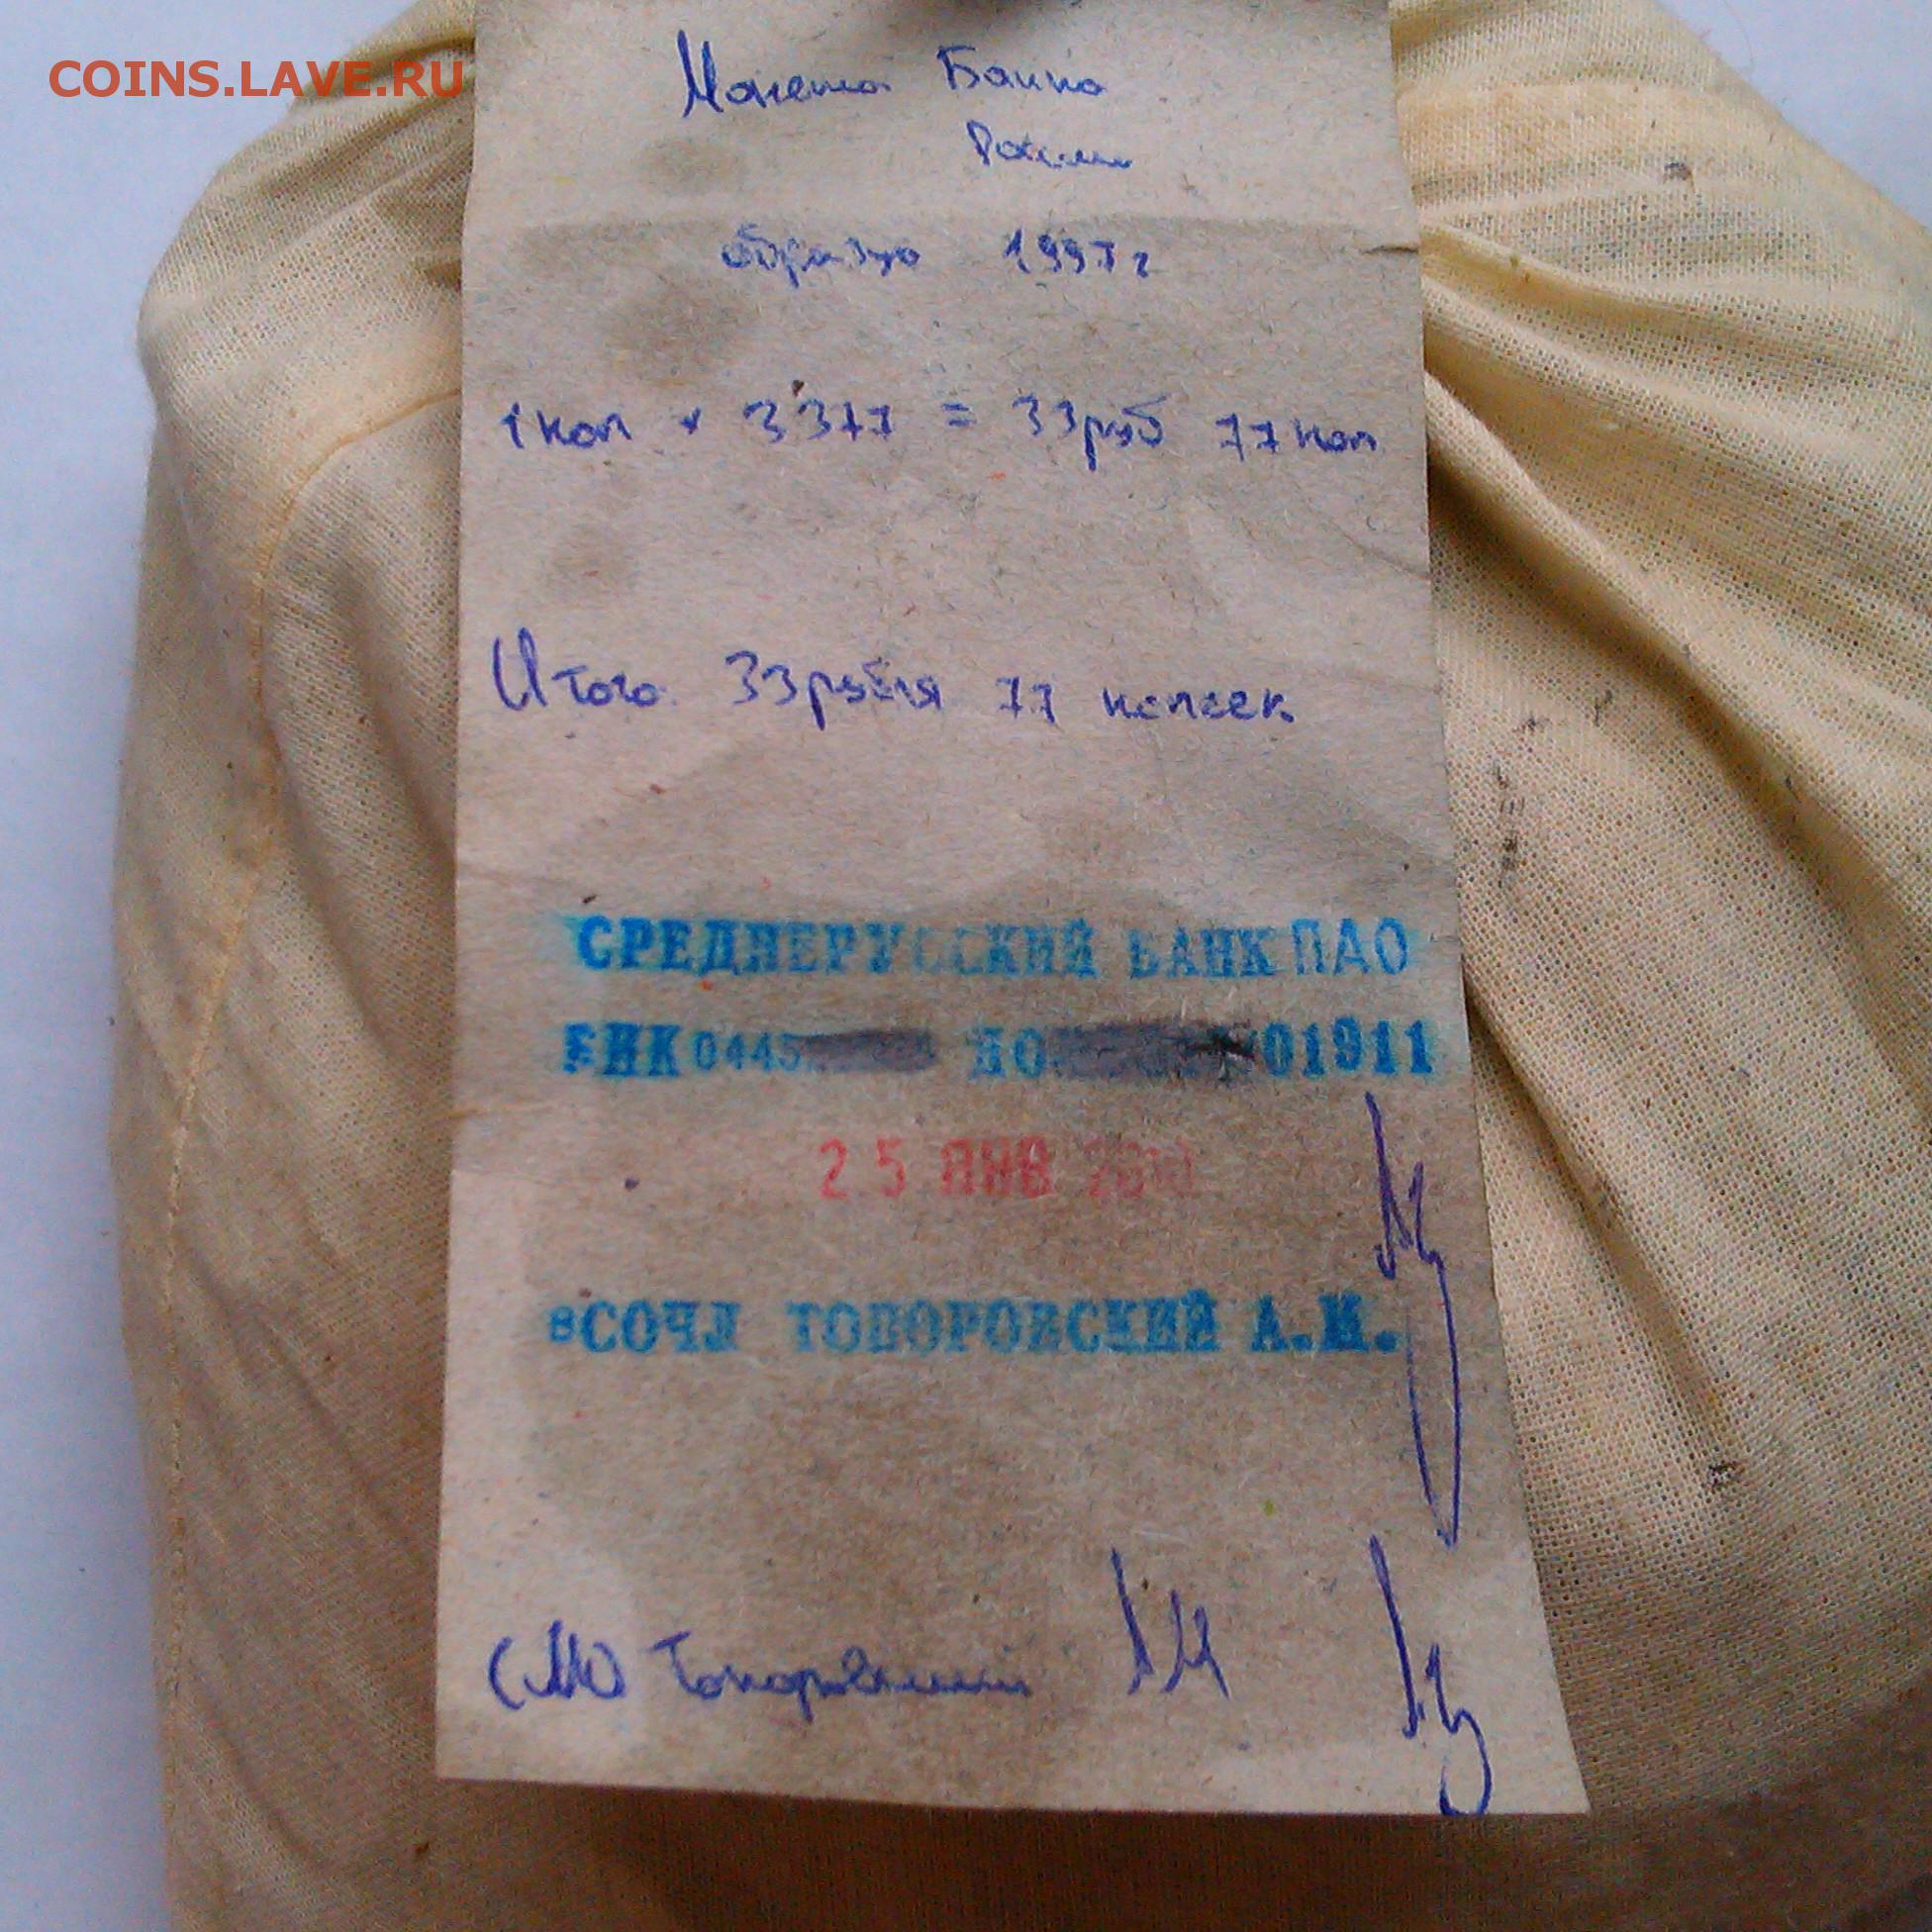 COINS.LAVE.RU
Монета Банка
России
образца 1997г
1 коп × 3377 = 33руб 77 коп
Итого 33рубля 77 копеек
СРЕДНЕРУССКИЙ БАНК ПАО
БИК 0445 01911
25 ЯНВ
ВСОЧЛ ТОПОРОВСКИЙ А.М.
Топоровский АМ